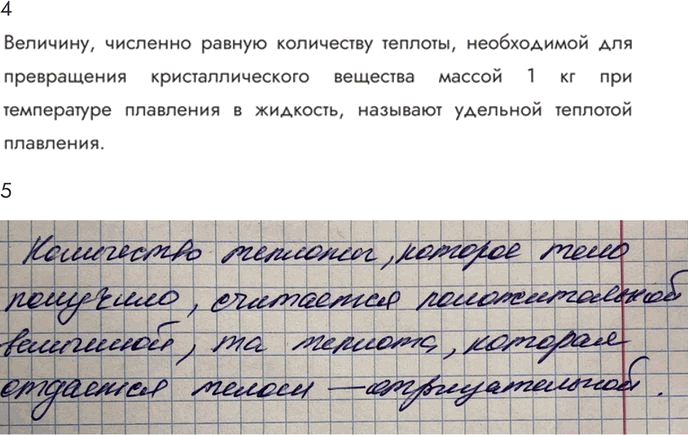 4
Величину, численно равную количеству теплоты, необходимой для
превращения кристаллического вещества массой 1 кг при
температуре плавления в жидкость, называют удельной теплотой
плавления.
5
Количество теплоты, которое тело
получило, считается положительной
величиной, та теплота, которая
отдается телом — отрицательной.